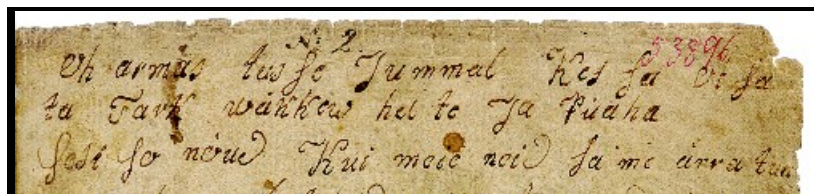 N: 2. 53896
Oh armas tusse Jummal Kes sa
ta Tark wäkkew hel te Ja Püäha
sest so nóuud Kui meie neid sa me ärra tun